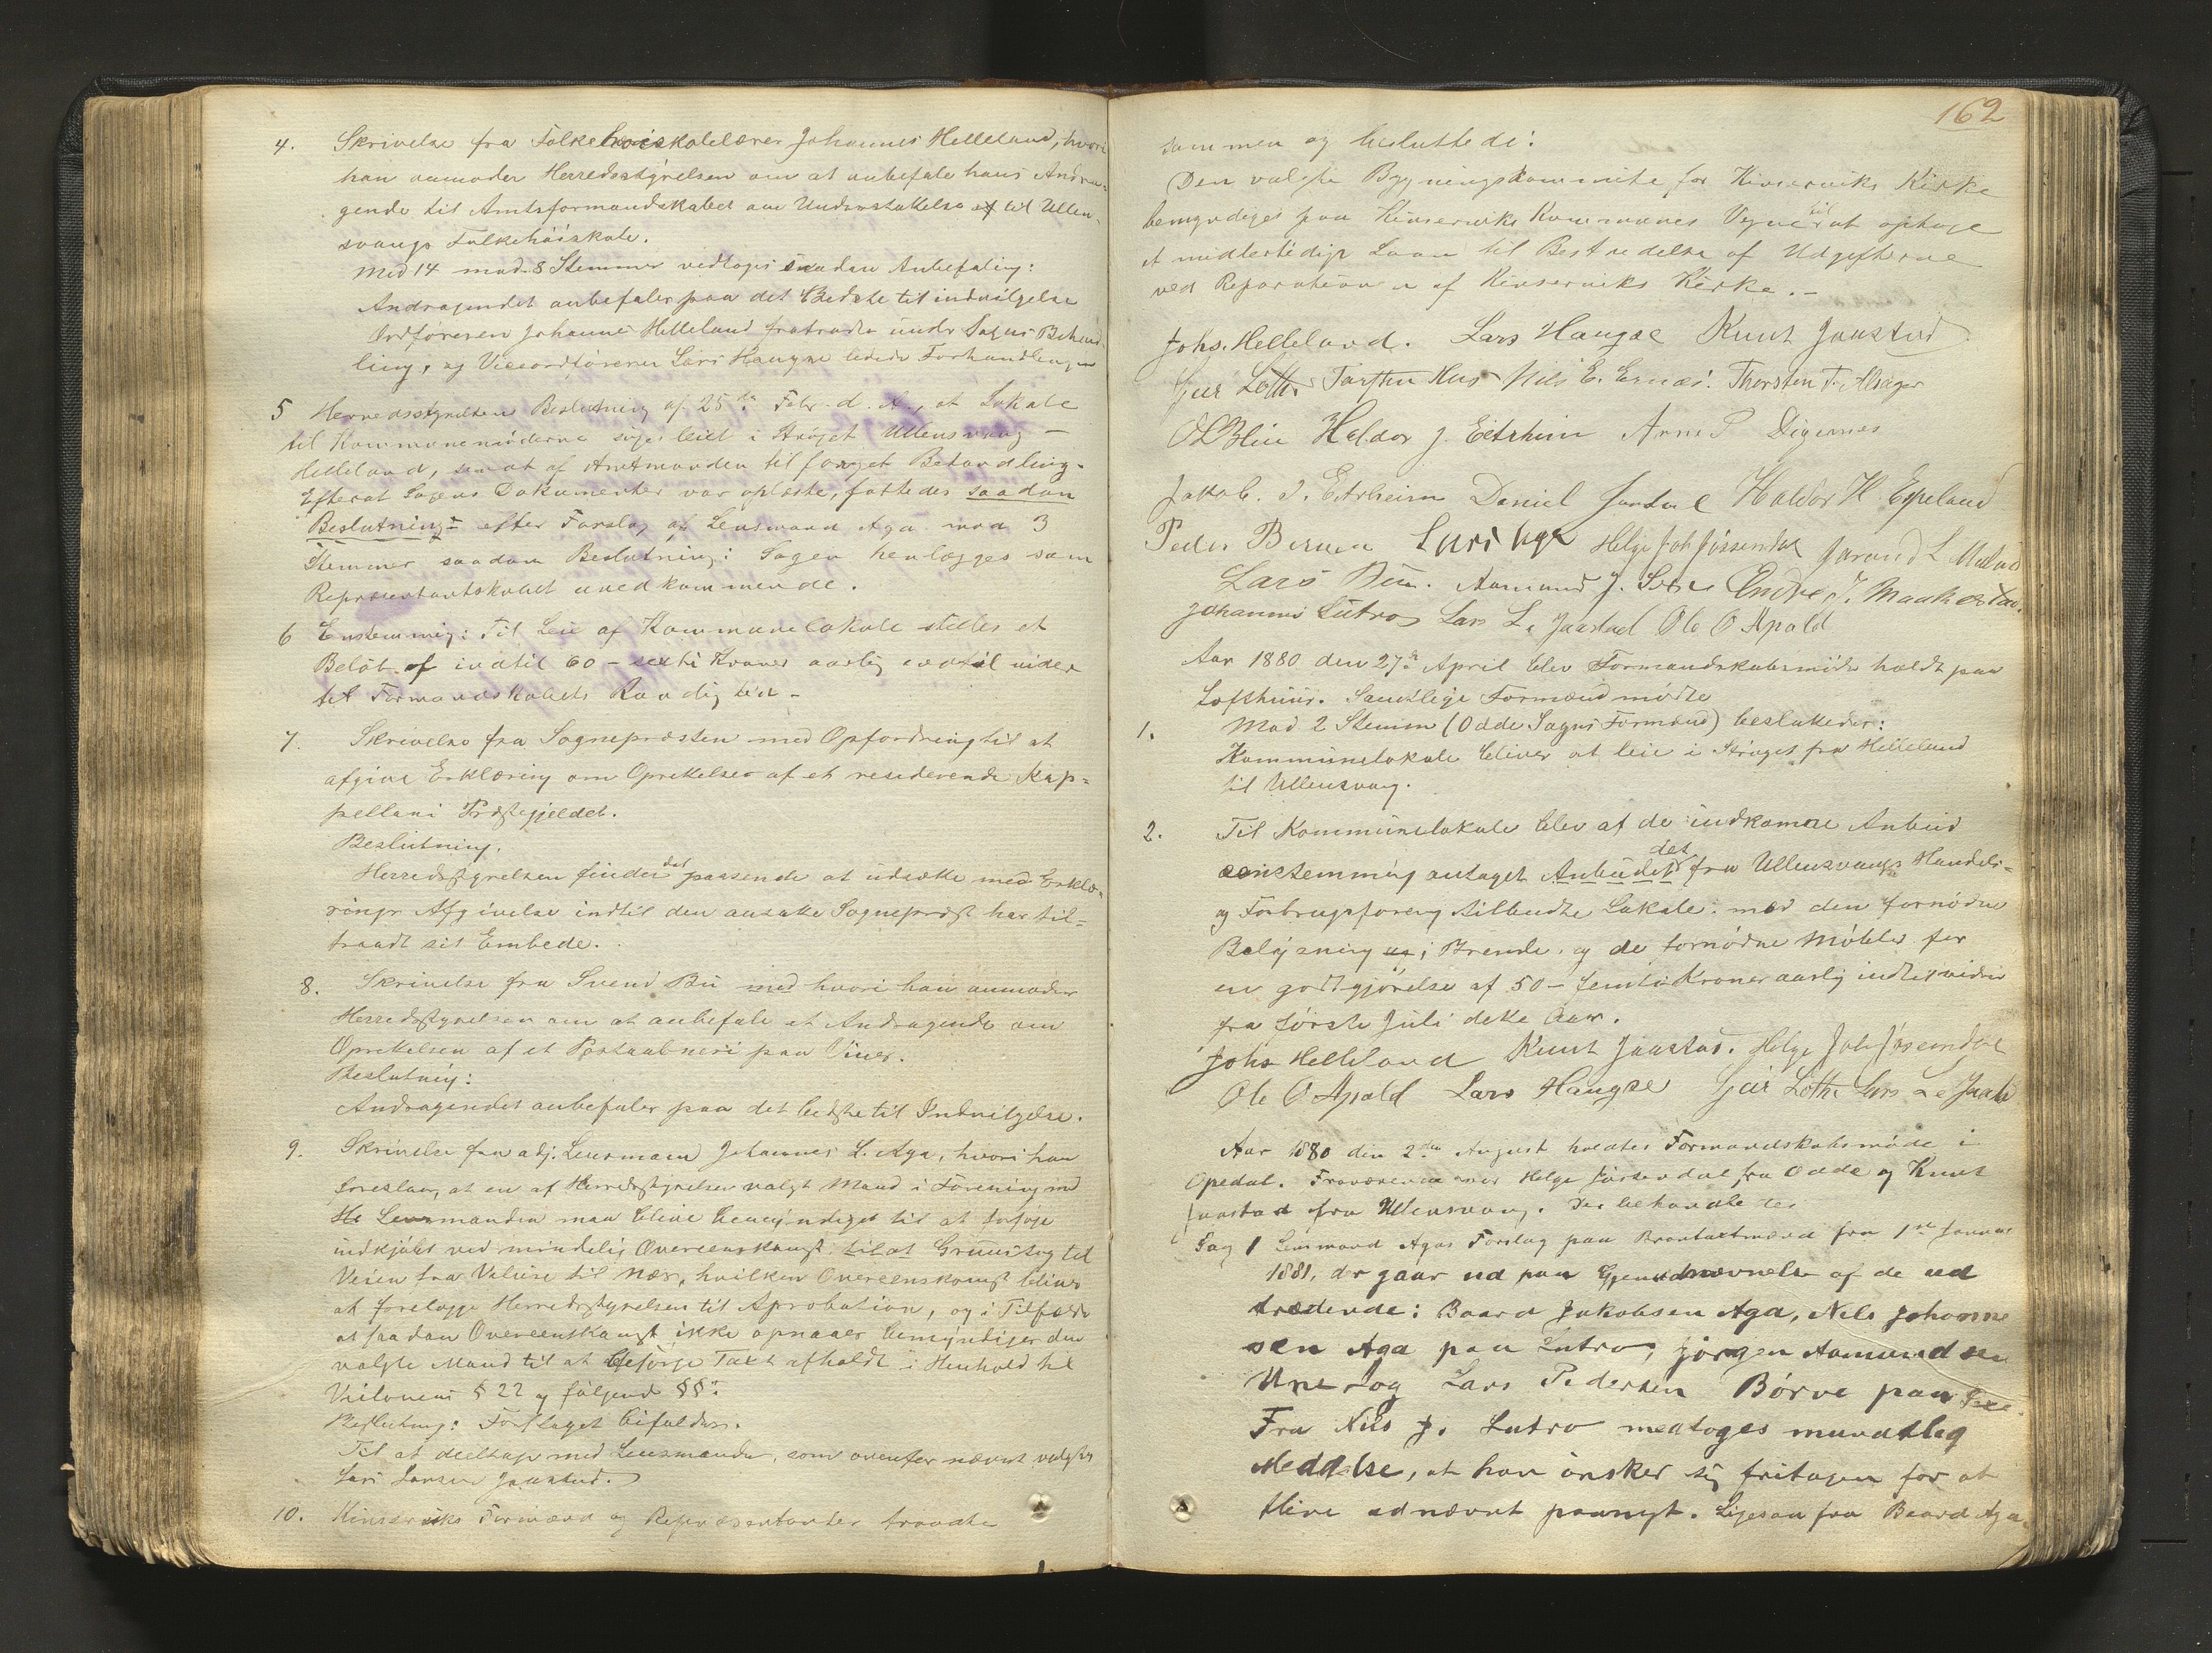 4. Skrivelse fra Folkehøiskolelærer Johannes Helleland, hvori
han anmoder Herredsstyrelsen om at anbefale hans Andra-
gende til Amtsformandskabet om Understøttelse af til Ullen-
svangs Folkehøiskole.
Med 14 mod 8 Stemmer vedtoges saadan Anbefaling:
Andragendet anbefales paa det Bedste til indvilgelse
Ordføreren Johannes Helleland fratraadte under Sagens Behand-
ling, og Viceordføreren Lars Haugse ledede Forhandlingen
5 Herredsstyrelsens Beslutning af 25de Febr. d. A., at Lokale
til Kommunemøderne søges leiet i Strøget Ullensvang –
Helleland, sendt af Amtmanden til fornyet Behandling.
Efterat Sagens Dokumenter var oplæste, fattedes saadan
Beslutning: efter Forslag af Lensmand Aga mod 3
Stemmer saadan Beslutning: Sagen henlægges som
Repræsentantskabet uvedkommende.
6 Enstemmig: Til Leie af Kommunelokale stilles et
Beløb af indtil 60 – sexti Kroner aarlig indtil videre
til Formandskabets Raadighed –
7. Skrivelse fra Sognepræsten med Opfordring til at
afgive Erklæring om Oprettelse af et residerende Kap-
pellani i Præstegjeldet.
Beslutning.
Herredsstyrelsen finder det passende at udsætte med Erklæ-
rings Afgivelse indtil den ansatte Sognepræst har til-
traadt sit Embede.
8. Skrivelse fra Svend Bu med hvori han anmoder
Herredsstyrelsen om at anbefale et Andragende om
Oprettelsen af et Postaabneri paa Vines.
Beslutning:
Andragendet anbefales paa det bedste til Indvilgelse.
9. Skrivelse fra adj. Lensmand Johannes L. Aga, hvori han
foreslaar, at en af Herredsstyrelsen valgt Mand i Forening med
Hr Lensmanden maa blive bemyndiget til at forsøge
indkjøbt ved mindelig Overenskomst, til at Gruustag til
Veien fra Velure til Næs, hvilken Overenskomst bliver
at forelægge Herredsstyrelsen til Aprobation, og i Tilfælde
at saadan Overenskomst ikke opnaaes bemyndiges den
valgte Mand til at besørge Taxt afholdt i Henhold til
Veilovens § 22 og følgende §§.
Beslutning: Forslaget bifaldes.
Til at deeltage med Lensmanden, som ovenfor nævnt valgtes
Lars Larsen Jaastad.
10. Kinserviks Formænd og Repræsentanter traadte
162
sammen og besluttede:
Den valgte Bygningskommite for Kinserviks Kirke
bemyndiges paa Kinserviks Kommunes Vegne til at optage
et midlertidigt Laan til Bestridelse af Udgifterne
ved Reparationen af Kinserviks Kirke. –
Johs. Helleland. Lars Haugse Knut Jaastad
Geir Lothe Torsten Hus Nils E. Ernæs. Thorsten T. Alsager
O L Blie Heldor J. Eitrheim Arne P Digernes
Jakob. J. Eitrheim Daniel Jordal Haldor H. Espeland
Peder Berven Lars Aga Helge Joh Jøssendal Jarand L Måkestad
Lars Bu. Aamund J. Sexe Endre J. Maakestad.
Johannes Lutro Lars L. Jaastad Ole O Apold
Aar 1880 den 27de April blev Formandskabsmøde holdt paa
Lofthuus. Samtlige Formænd mødte
1. Mod 2 Stemm (Odde Sogns Formænd) beslutedes:
Kommunelokale bliver at leie i Strøget fra Helleland
til Ullensvang.
2. Til Kommunelokale blev af de indkomne Anbud
eenstemmig antaget Anbudet det fra Ullensvangs Handels-
og Forbrugsforeng tilbudte Lokale. med den fornødne
Belysning og, Brende. og de fornødne Møbler for
en godtgjørelse af 50 – femti Kroner aarlig indtil videre
fra første Juli dette Aar.
Johs Helleland Knut Jaastad. Helge Joh Jøsendal
Ole O Apold Lars Haugse Geir Lothe Lars L. Jaasta
Aar 1880 den 2den August holdtes Formandskabsmøde i
Opedal. Fraværende var Helge Jøssendal fra Odde og Knut
Jaastad fra Ullensvang. Der behandledes
Sag 1 Lensmand Agas Forslag paa Brantaxtmænd fra 1ste Januar
1881, der gaar ud paa Gjenudnævnelse af de ud
trædende: Baard Jakobsen Aga, Nils Johanne
sen Aga paa Lutro, Jørgen Aamundsen
Une og Lars Pedersen Børve paa Sexe
Fra Nils J. Lutro modtoges mundtlig
Meddelse, at han ønsker sig fritagen for at
blive udnævnt paanyt. Ligesaa fra Baard Aga